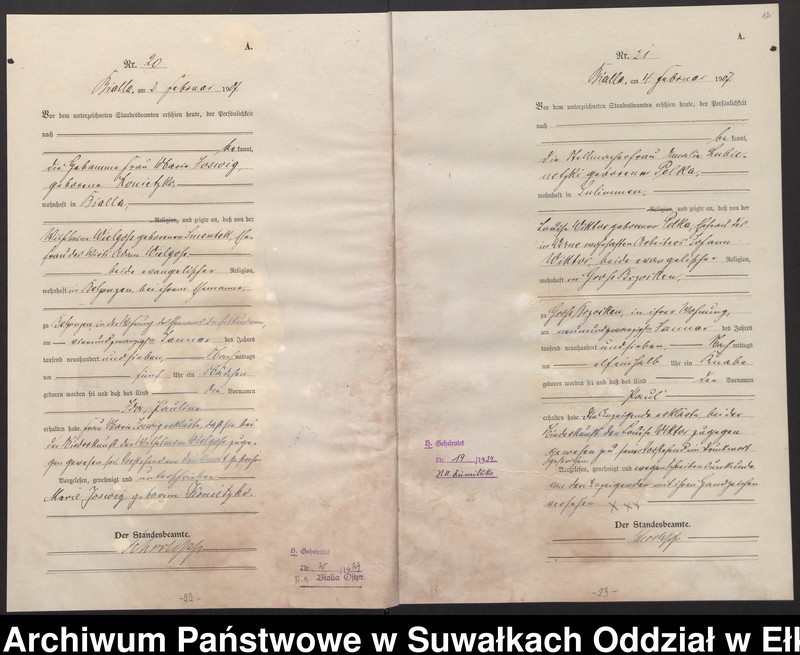 A.
Nr. 20
Bialla, am 2. Februar 1907.
Vor dem unterzeichneten Standesbeamten erschien heute, der Persönlichkeit
nach
be kannt,
die Hebamme Frau Marie Joswig,
geborene Konietzko
wohnhaft in Bialla,
Religion, und zeigte an, daß von der
Wilhelmine Wielgoß geborenen Ehe-
frau des Wirts Adam Wielgoß
beide evangelischer Religion,
wohnhaft in bei ihrem Ehemanne,
zu in der Wohnung des Ehemannes
am vierundzwanzigsten Januar des Jahres
tausend neunhundert und sieben, mittags
um fünf Uhr ein Mädchen
geboren worden sei und daß das Kind die Vornamen
Ida Pauline
erhalten habe. Frau Marie Joswig erklärte, daß sie bei
der Niederkunft der Wilhelmine Wielgoß zuge-
gen gewesen sei.
Vorgelesen, genehmigt und unterschrieben
Marie Joswig geborene Konietzko.
Der Standesbeamte.
H. Geheiratet
Nr. /19
Bialla Ostpr.
-22-
A.
Nr. 21
Bialla, am 4. Februar 1907.
Vor dem unterzeichneten Standesbeamten erschien heute, der Persönlichkeit
nach
be kannt,
die Stellmacherfrau Amalie
geborene Polka,
wohnhaft in Sulimmen,
Religion, und zeigte an, daß von der
Louise Wiktor geborenen Polka, Ehefrau des
in wohnhaften Arbeiters Johann
Wiktor, beide evangelischer Religion,
wohnhaft in Groß Brzosken,
zu Groß Brzosken, in ihrer Wohnung,
am neunundzwanzigsten Januar des Jahres
tausend neunhundert und sieben, Nach mittags
um elfeinhalb Uhr ein Knabe
geboren worden sei und daß das Kind den Vornamen
Paul
erhalten habe. Die Anzeigende erklärte bei der
Niederkunft der Louise Wiktor zugegen
gewesen zu sein. Vorstehend ein Druckwort
gestrichen.
Vorgelesen, genehmigt und wegen Schreibensunkunde
von der Anzeigenden mit ihrem Handzeichen
versehen x x x
Der Standesbeamte.
H. Geheiratet
Nr. 19 /1934
-23-
Archiwum Państwowe w Suwałkach Oddział w Ełk